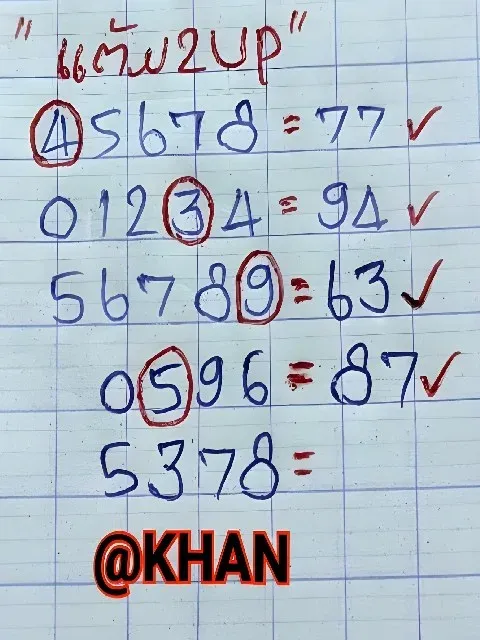 "แต้ม2UP"
45678 = 77 ✓
01234 = 94 ✓
56789 = 63 ✓
0596 = 87 ✓
5378 =
@KHAN